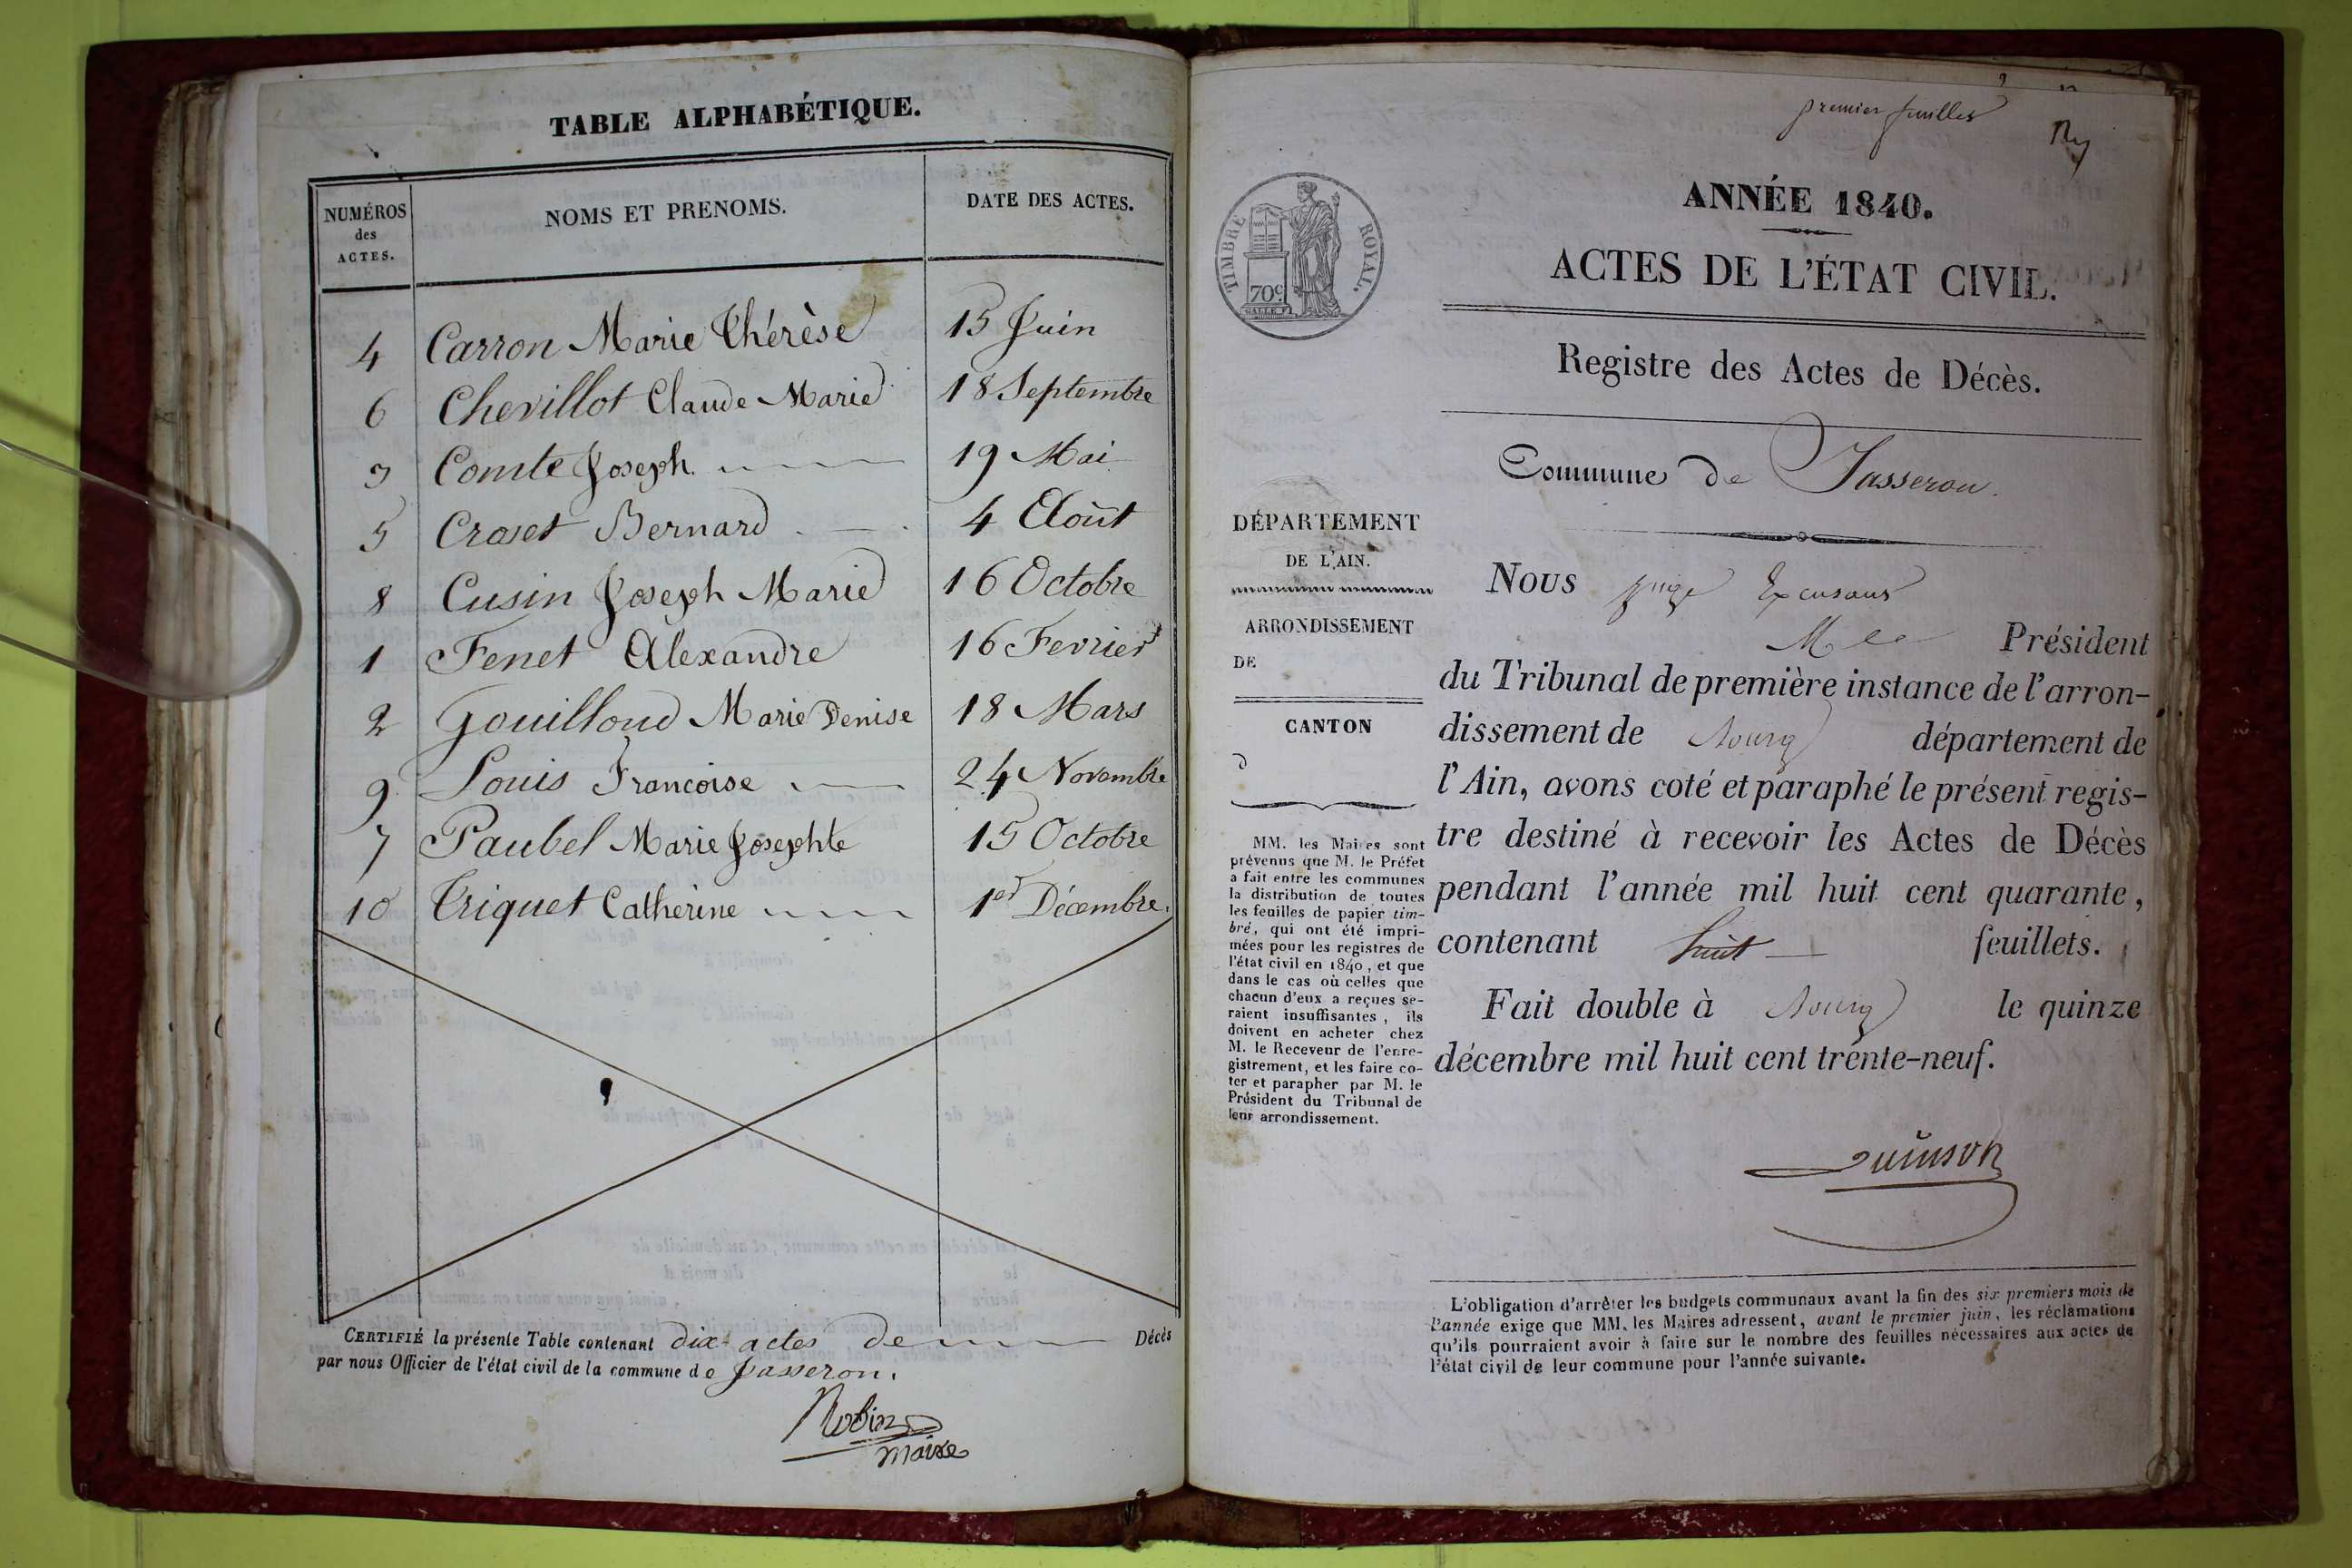 TABLE ALPHABÉTIQUE.
NUMÉROS des ACTES.
NOMS ET PRENOMS.
DATE DES ACTES.
4 Carron Marie Thérèse 15 Juin
6 Chevillot Claude Marie 18 Septembre
3 Comte Joseph. 19 Mai
5 Croset Bernard 4 Août
8 Cusin Joseph Marie 16 Octobre
1 Fenet Alexandre 16 Fevrier
2 Gouilloud Marie Denise 18 Mars
9 Louis Francoise 24 Novembre
7 Paubel Marie Josephte 15 Octobre
10 Triquet Catherine 1er Décembre.
CERTIFIÉ la présente Table contenant dix actes de Décès
par nous Officier de l'état civil de la commune de Jasseron.
Robin
maire
premier feuillet
ANNÉE 1840.
TIMBRE ROYAL.
70c
ACTES DE L'ÉTAT CIVIL.
Registre des Actes de Décès.
Commune de Jasseron.
DÉPARTEMENT
DE L'AIN.
ARRONDISSEMENT
DE
CANTON
d
MM. les Maires sont
prévenus que M. le Préfet
a fait entre les communes
la distribution de toutes
les feuilles de papier tim-
bré, qui ont été impri-
mées pour les registres de
l'état civil en 1840, et que
dans le cas où celles que
chacun d'eux a reçues se-
raient insuffisantes, ils
doivent en acheter chez
M. le Receveur de l'enre-
gistrement, et les faire co-
ter et parapher par M. le
Président du Tribunal de
leur arrondissement.
Nous juge
M le Président
du Tribunal de première instance de l'arron-
dissement de Bourg département de
l'Ain, avons coté et paraphé le présent regis-
tre destiné à recevoir les Actes de Décès
pendant l'année mil huit cent quarante,
contenant huit feuillets.
Fait double à Bourg le quinze
décembre mil huit cent trente-neuf.
Quinson
L'obligation d'arrêter les budgets communaux avant la fin des six premiers mois de
l'année exige que MM. les Maires adressent, avant le premier juin, les réclamations
qu'ils pourraient avoir à faire sur le nombre des feuilles nécessaires aux actes de
l'état civil de leur commune pour l'année suivante.